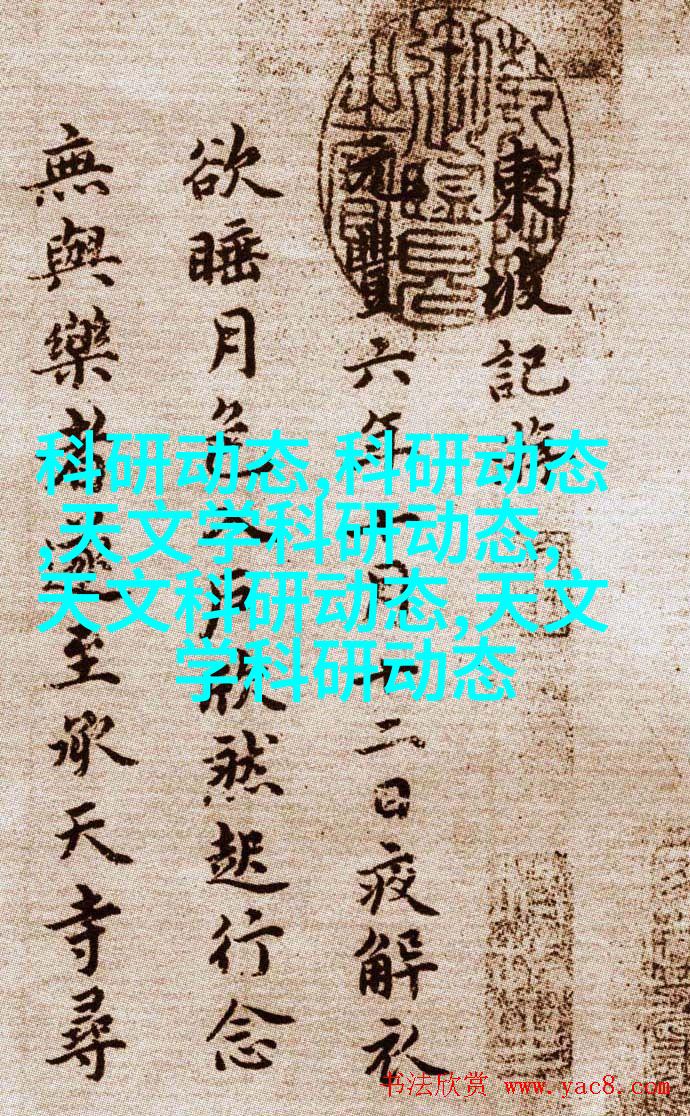 東坡記
元豐六年十月十二日夜解衣
欲睡月色入户欣然起行念
無與樂者遂至承天寺尋
科研动态,科研动态
,天文学科研动态,
天文科研动态,天文
学科研动态
书法欣赏 www.yac8.com